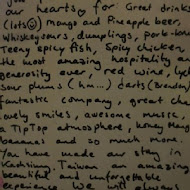 you
hearts for Great drinks
(lots☺) mango and Pineapple beer,
Whiskey sours, dumplings, pork-bone
Teeny spicy fish, Spicy chicken
the most amazing hospitality an
generosity ever, red wine,
sour plums (hm...) darts
fantastic company, great che
lovely smiles, awesome music,
a TipTop atmosphere,
bananas and so much more
You have made my stay in
Kaohsiung Taiwan an amazing
beautiful and unforgettable
experience We will always